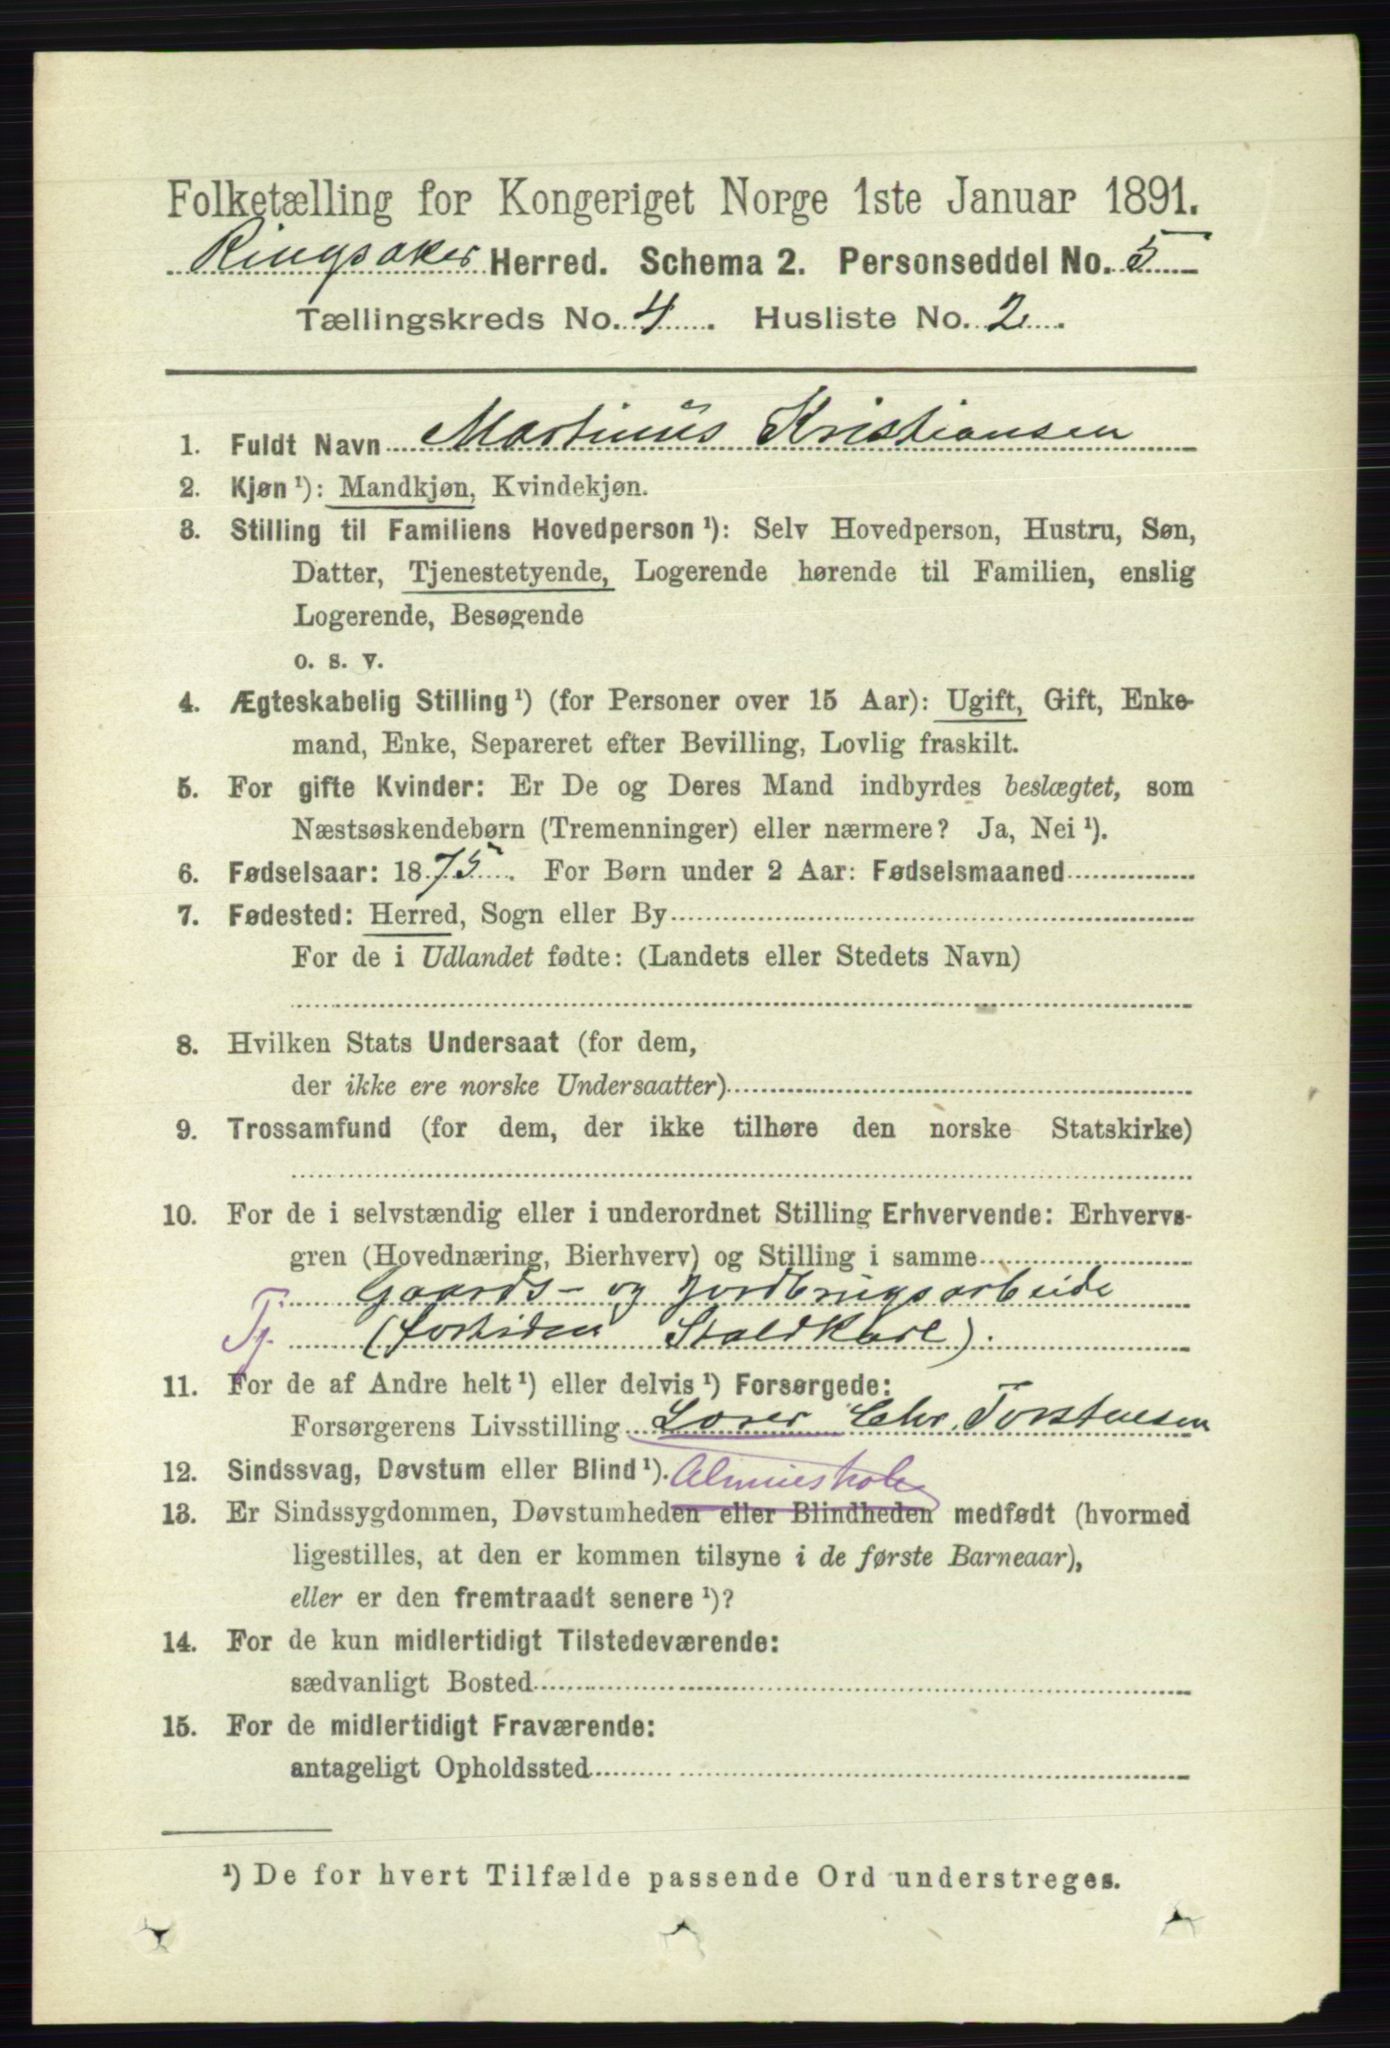 Folketælling for Kongeriget Norge 1ste Januar 1891.
Ringsaker Herred. Schema 2. Personseddel No. 5
Tællingskreds No. 4. Husliste No. 2.
1. Fuldt Navn Martinus Kristiansen
2. Kjøn ¹): Mandkjøn, Kvindekjøn.
3. Stilling til Familiens Hovedperson ¹): Selv Hovedperson, Hustru, Søn,
Datter, Tjenestetyende, Logerende hørende til Familien, enslig
Logerende, Besøgende
o. s. v.
4. Ægteskabelig Stilling ¹) (for Personer over 15 Aar): Ugift, Gift, Enke-
mand, Enke, Separeret efter Bevilling, Lovlig fraskilt.
5. For gifte Kvinder: Er De og Deres Mand indbyrdes beslægtet, som
Næstsøskendebørn (Tremenninger) eller nærmere? Ja, Nei ¹).
6. Fødselsaar: 1875. For Børn under 2 Aar: Fødselsmaaned
7. Fødested: Herred, Sogn eller By
For de i Udlandet fødte: (Landets eller Stedets Navn)
8. Hvilken Stats Undersaat (for dem,
der ikke ere norske Undersaatter)
9. Trossamfund (for dem, der ikke tilhøre den norske Statskirke)
10. For de i selvstændig eller i underordnet Stilling Erhvervende: Erhvervs-
gren (Hovednæring, Bierhverv) og Stilling i samme
Gaards- og Jordbrugsarbeide
Tj. (fortiden Staldkarl).
11. For de af Andre helt ¹) eller delvis ¹) Forsørgede:
Forsørgerens Livsstilling Lærer Chr. Torstensen
12. Sindssvag, Døvstum eller Blind ¹). Almueskole
13. Er Sindssygdommen, Døvstumheden eller Blindheden medfødt (hvormed
ligestilles, at den er kommen tilsyne i de første Barneaar),
eller er den fremtraadt senere ¹)?
14. For de kun midlertidigt Tilstedeværende:
sædvanligt Bosted
15. For de midlertidigt Fraværende:
antageligt Opholdssted
¹) De for hvert Tilfælde passende Ord understreges.